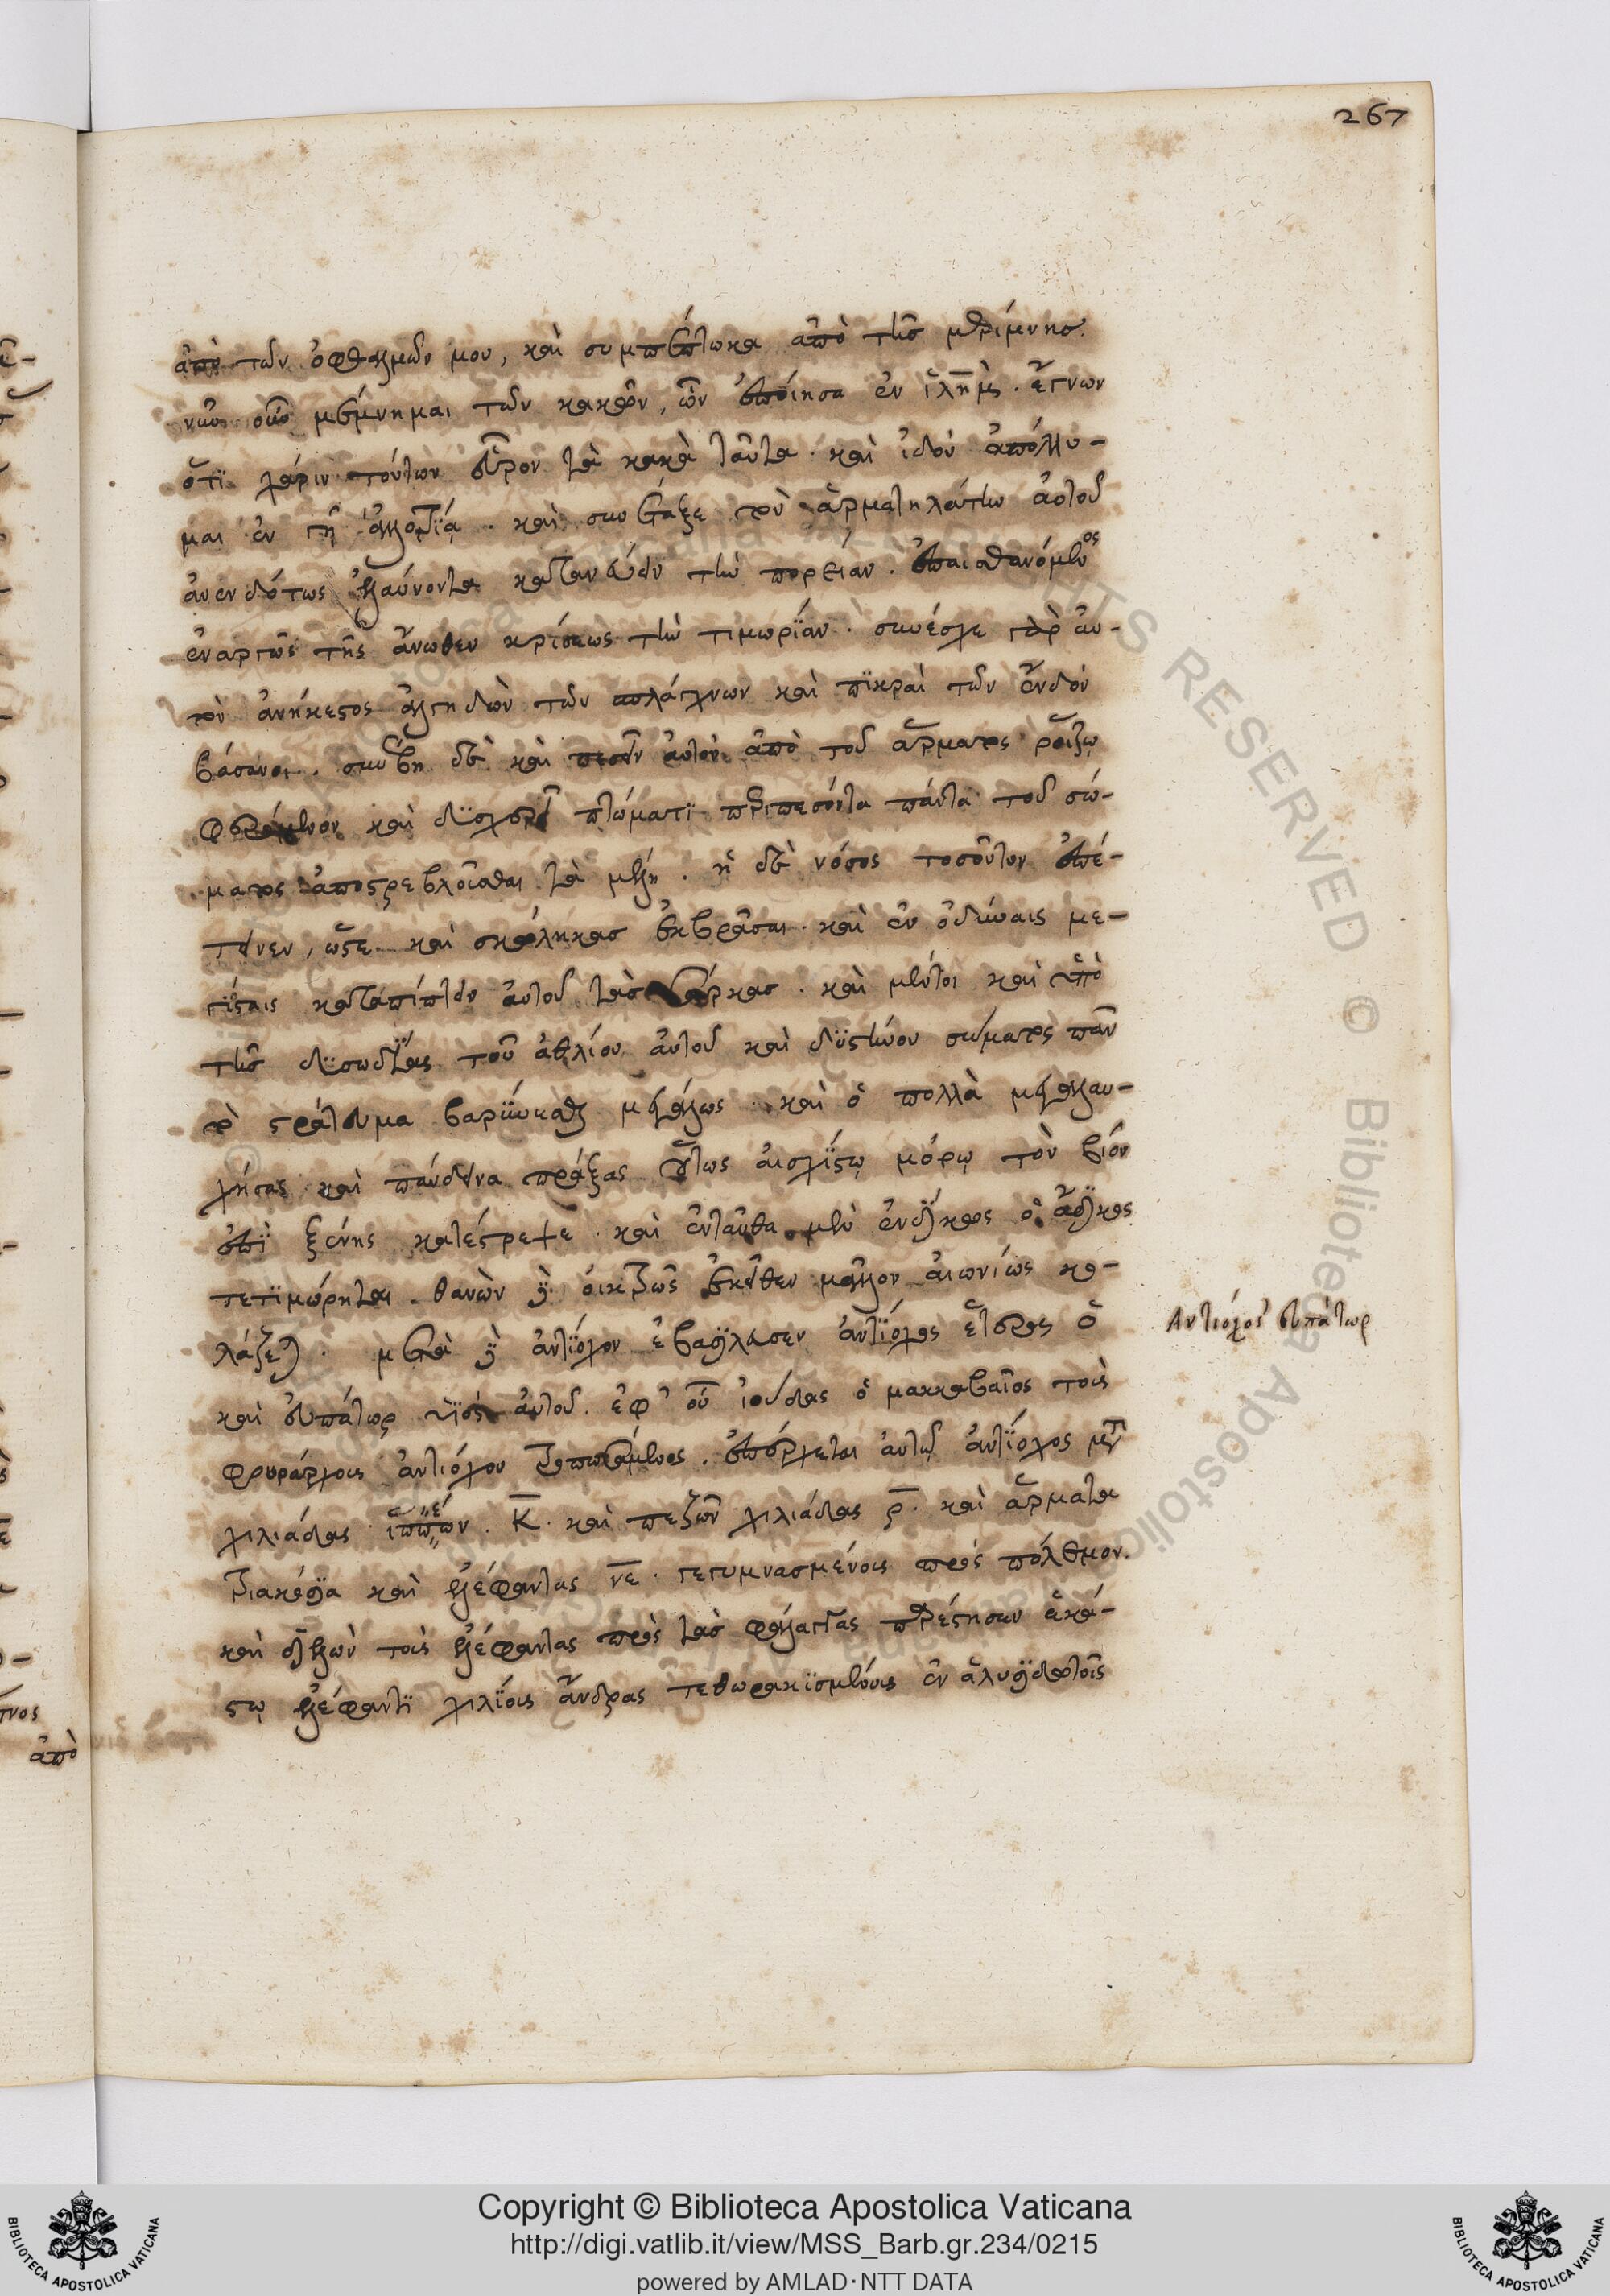 267
ἀπὸ τῶν ὀφθαλμῶν μου, καὶ συμπέπτωκα ἀπὸ τῆς μερίμνης.
νῦν οὖν μέμνημαι τῶν κακῶν, ὧν ἐποίησα ἐν ἰλημ. ἔγνων
ὅτι χάριν τούτων εὗρον τὰ κακὰ ταῦτα. καὶ ἰδοὺ ἀπόλλυ-
μαι ἐν γῇ ἀλλοτρία. καὶ συνέταξε τὸν ἁρματηλάτην αὐτοῦ
ἀνενδότως ἐλαύνοντα κατανύειν τὴν πορείαν. ἐπαισθανόμενος
ἐναργῶς τῆς ἄνωθεν κρίσεως τὴν τιμωρίαν. συνέσχε γὰρ αὐ-
τὸν ἀνήκεστος ἀλγηδὼν τῶν σπλάγχνων καὶ πικραὶ τῶν ἔνδον
βάσανοι. συνέβη δὲ καὶ πεσεῖν αὐτὸν ἀπὸ τοῦ ἅρματος ῥοίζῳ
φερόμενον καὶ δυσχερεῖ πτώματι περιπεσόντα πάντα τοῦ σώ-
ματος ἀποστρεβλοῦσθαι τὰ μέλη. ἡ δὲ νόσος τοσοῦτον ἐπέ-
τεινεν, ὥστε καὶ σκώληκας ἐκβράσαι. καὶ ἐν ὀδύναις με-
γίσταις καταπίπτειν αὐτοῦ τὰς σάρκας. καὶ μέντοι καὶ ὑπὸ
τῆς δυσωδίας τοῦ ἀθλίου αὐτοῦ καὶ δυστήνου σώματος πᾶν
τὸ στράτευμα βαρύνεσθαι μεγάλως. καὶ ὁ πολλὰ μεγαλαυ-
χήσας καὶ πάνδεινα πράξας οὕτως αἰσχίστῳ μόρῳ τὸν βίον
ἐπὶ ξένης κατέστρεψε. καὶ ἐνταῦθα μὲν ἐνδίκως ὁ ἄδικος
τετιμώρηται. θανὼν δὲ οἰκτρῶς ἐκεῖθεν μᾶλλον αἰωνίως κο-
λάζεται. μετὰ δὲ ἀντίοχον ἐβασίλευσεν ἀντίοχος ἕτερος ὁ
καὶ εὐπάτωρ υἱὸς αὐτοῦ. ἐφ' οὗ ἰούδας ὁ μακκαβαῖος τοὺς
φρουράρχους ἀντιόχου τροπωσάμενος. ἐπέρχεται αὐτῷ ἀντίοχος μετὰ
χιλιάδας ἱππέων. κ. καὶ πεζῶν χιλιάδας ρ. καὶ ἅρματα
τριακόσια καὶ ἐλέφαντας νε. γεγυμνασμένους πρὸς πόλεμον.
καὶ διελὼν τοὺς ἐλέφαντας πρὸς τὰς φάλαγγας παρέστησεν ἑκά-
στῳ ἐλέφαντι χιλίους ἄνδρας τεθωρακισμένους ἐν ἁλυσιδωτοῖς
Αντιόχος ευπάτωρ
Copyright © Biblioteca Apostolica Vaticana
http://digi.vatlib.it/view/MSS_Barb.gr.234/0215
powered by AMLAD·NTT DATA
BIBLIOTECA APOSTOLICA VATICANA
BIBLIOTECA APOSTOLICA VATICANA